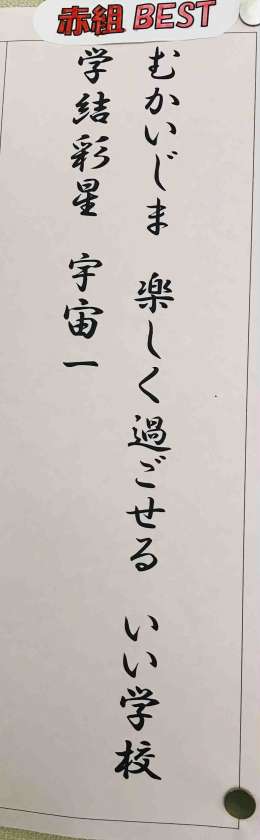 赤組 BEST
むかいじま 楽しく過ごせる いい学校
学結彩星 宇宙一